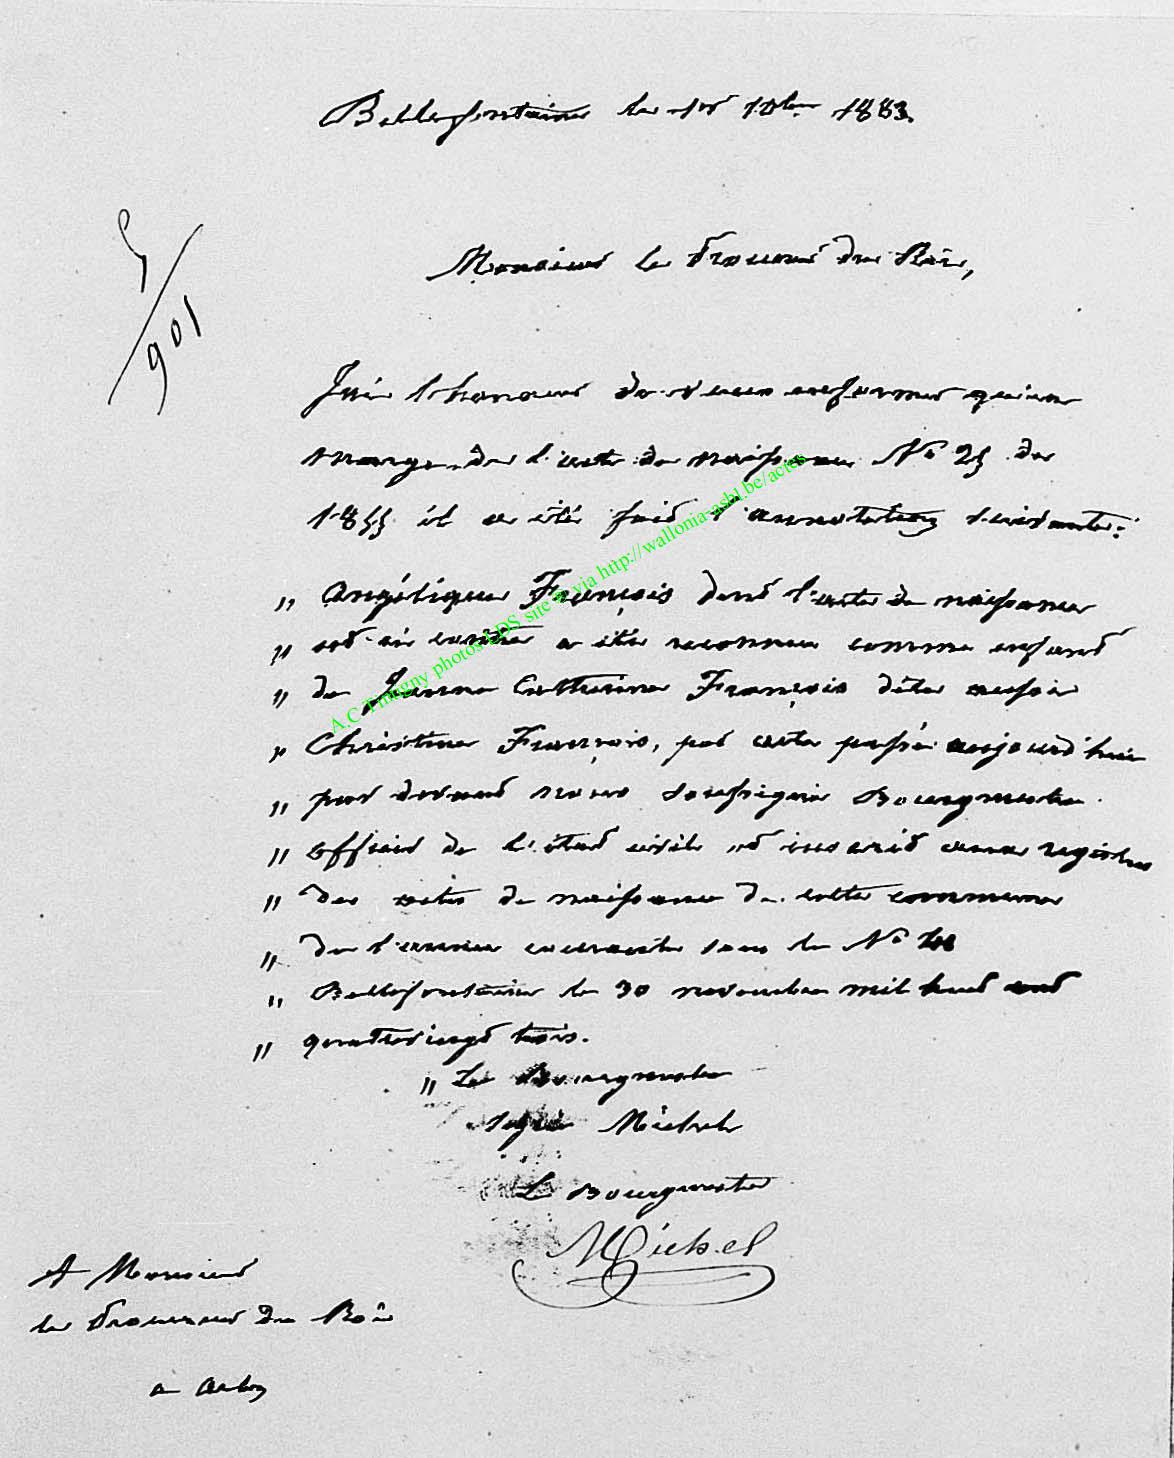 Bellefontaine le 1er 10bre 1883.
5/901
Monsieur le Procureur du Roi,
J'ai l'honneur de vous informer qu'en
marge de l'acte de naissance No 25 de
1855 il a été fait l'annotation suivante :
" Angélique François dont l'acte de naissance
" est ci contre a été reconnue comme enfant
" de Jeanne Catherine François dite aussi
" Christine François, par acte passé aujourd'hui
" par devant nous soussigné Bourgmestre
" officier de l'état civil et inscrit aux registres
" des actes de naissance de cette commune
" de l'année courante sous le No
" Bellefontaine le 30 novembre mil huit cent
" quatrevingt trois.
" Le Bourgmestre
signé Michel
Le Bourgmestre
Michel
A Monsieur
le Procureur du Roi
a Arlon
A.C Tintigny photos LDS site via http://wallonia-asbl.be/actes